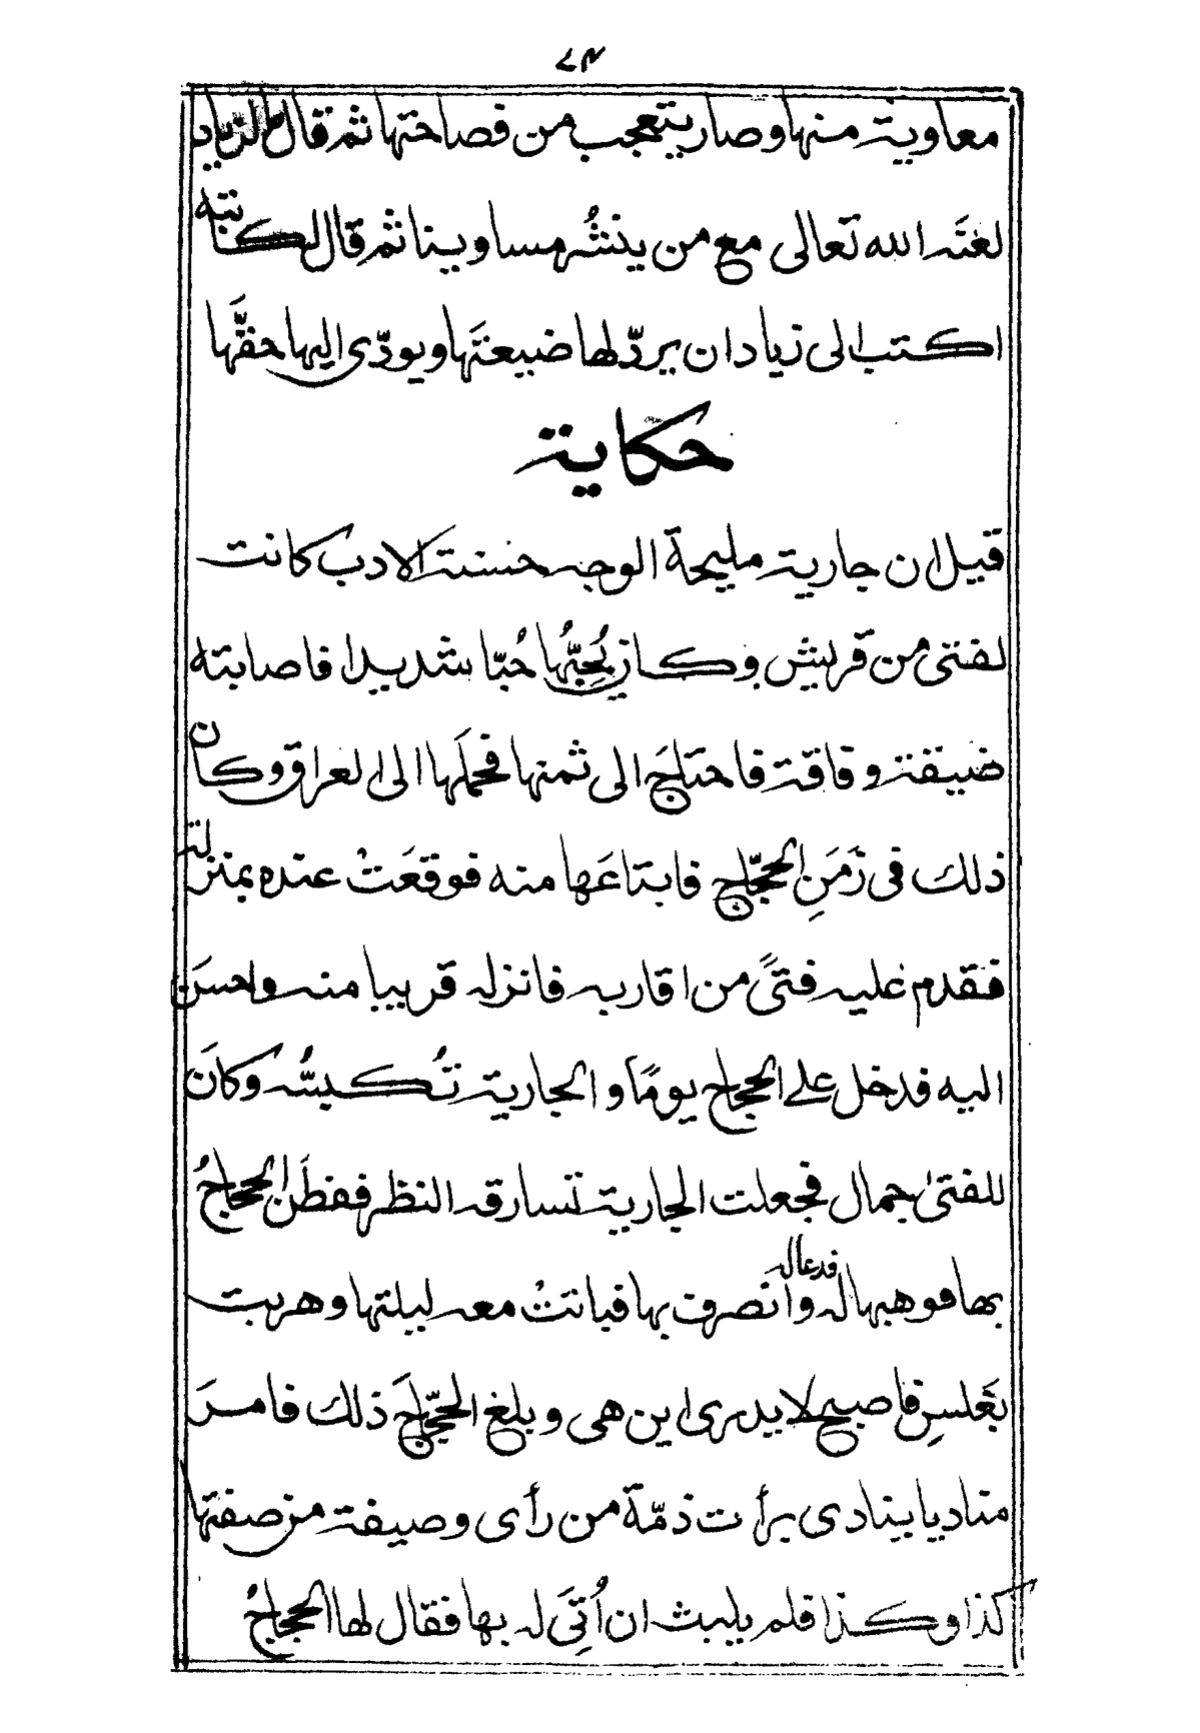 ٧٤
معاوية منها وصار يتعجب من فصاحتها ثم قال لزياد
لعنه الله تعالى مع من ينشُر مساوينا ثم قال لكاتبه
اكتب الى زياد ان يردّ لها ضيعتَها ويودّى اليها حقَّها
حكاية
قيل ان جارية مليحة الوجه حسنة الادب كانت
لفتى من قريش وكان يُحِبُّها حُبّا شديدا فاصابته
ضيقة وفاقة فاحتاجَ الى ثمنها فحملَها الى العراق وكان
ذلك فى زَمَنِ الحجّاج فابتاعَها منه فوقعَتْ عنده بمنزلة
فقدم عليه فتىً من اقاربه فانزله قريبا منه واحسَن
اليه فدخل على الحجاج يومًا والجارية تُكبسُّه وكانَ
للفتىٰ جمال فجعلت الجارية تسارقه النظر ففطَن الحجاجُ
بها فوهبها له فدعا له وانصرف بها فباتتْ معه ليلتها وهربت
بغَلسِ فاصبح لا يدرى اين هى وبلغ الحجّاجَ ذلك فامرَ
مناديا ينادى برأت ذمّة من رأى وصيفة من صفتها
كذا وكذا فلم يلبث ان اُتِىَ له بها فقال لها الحجاجُ